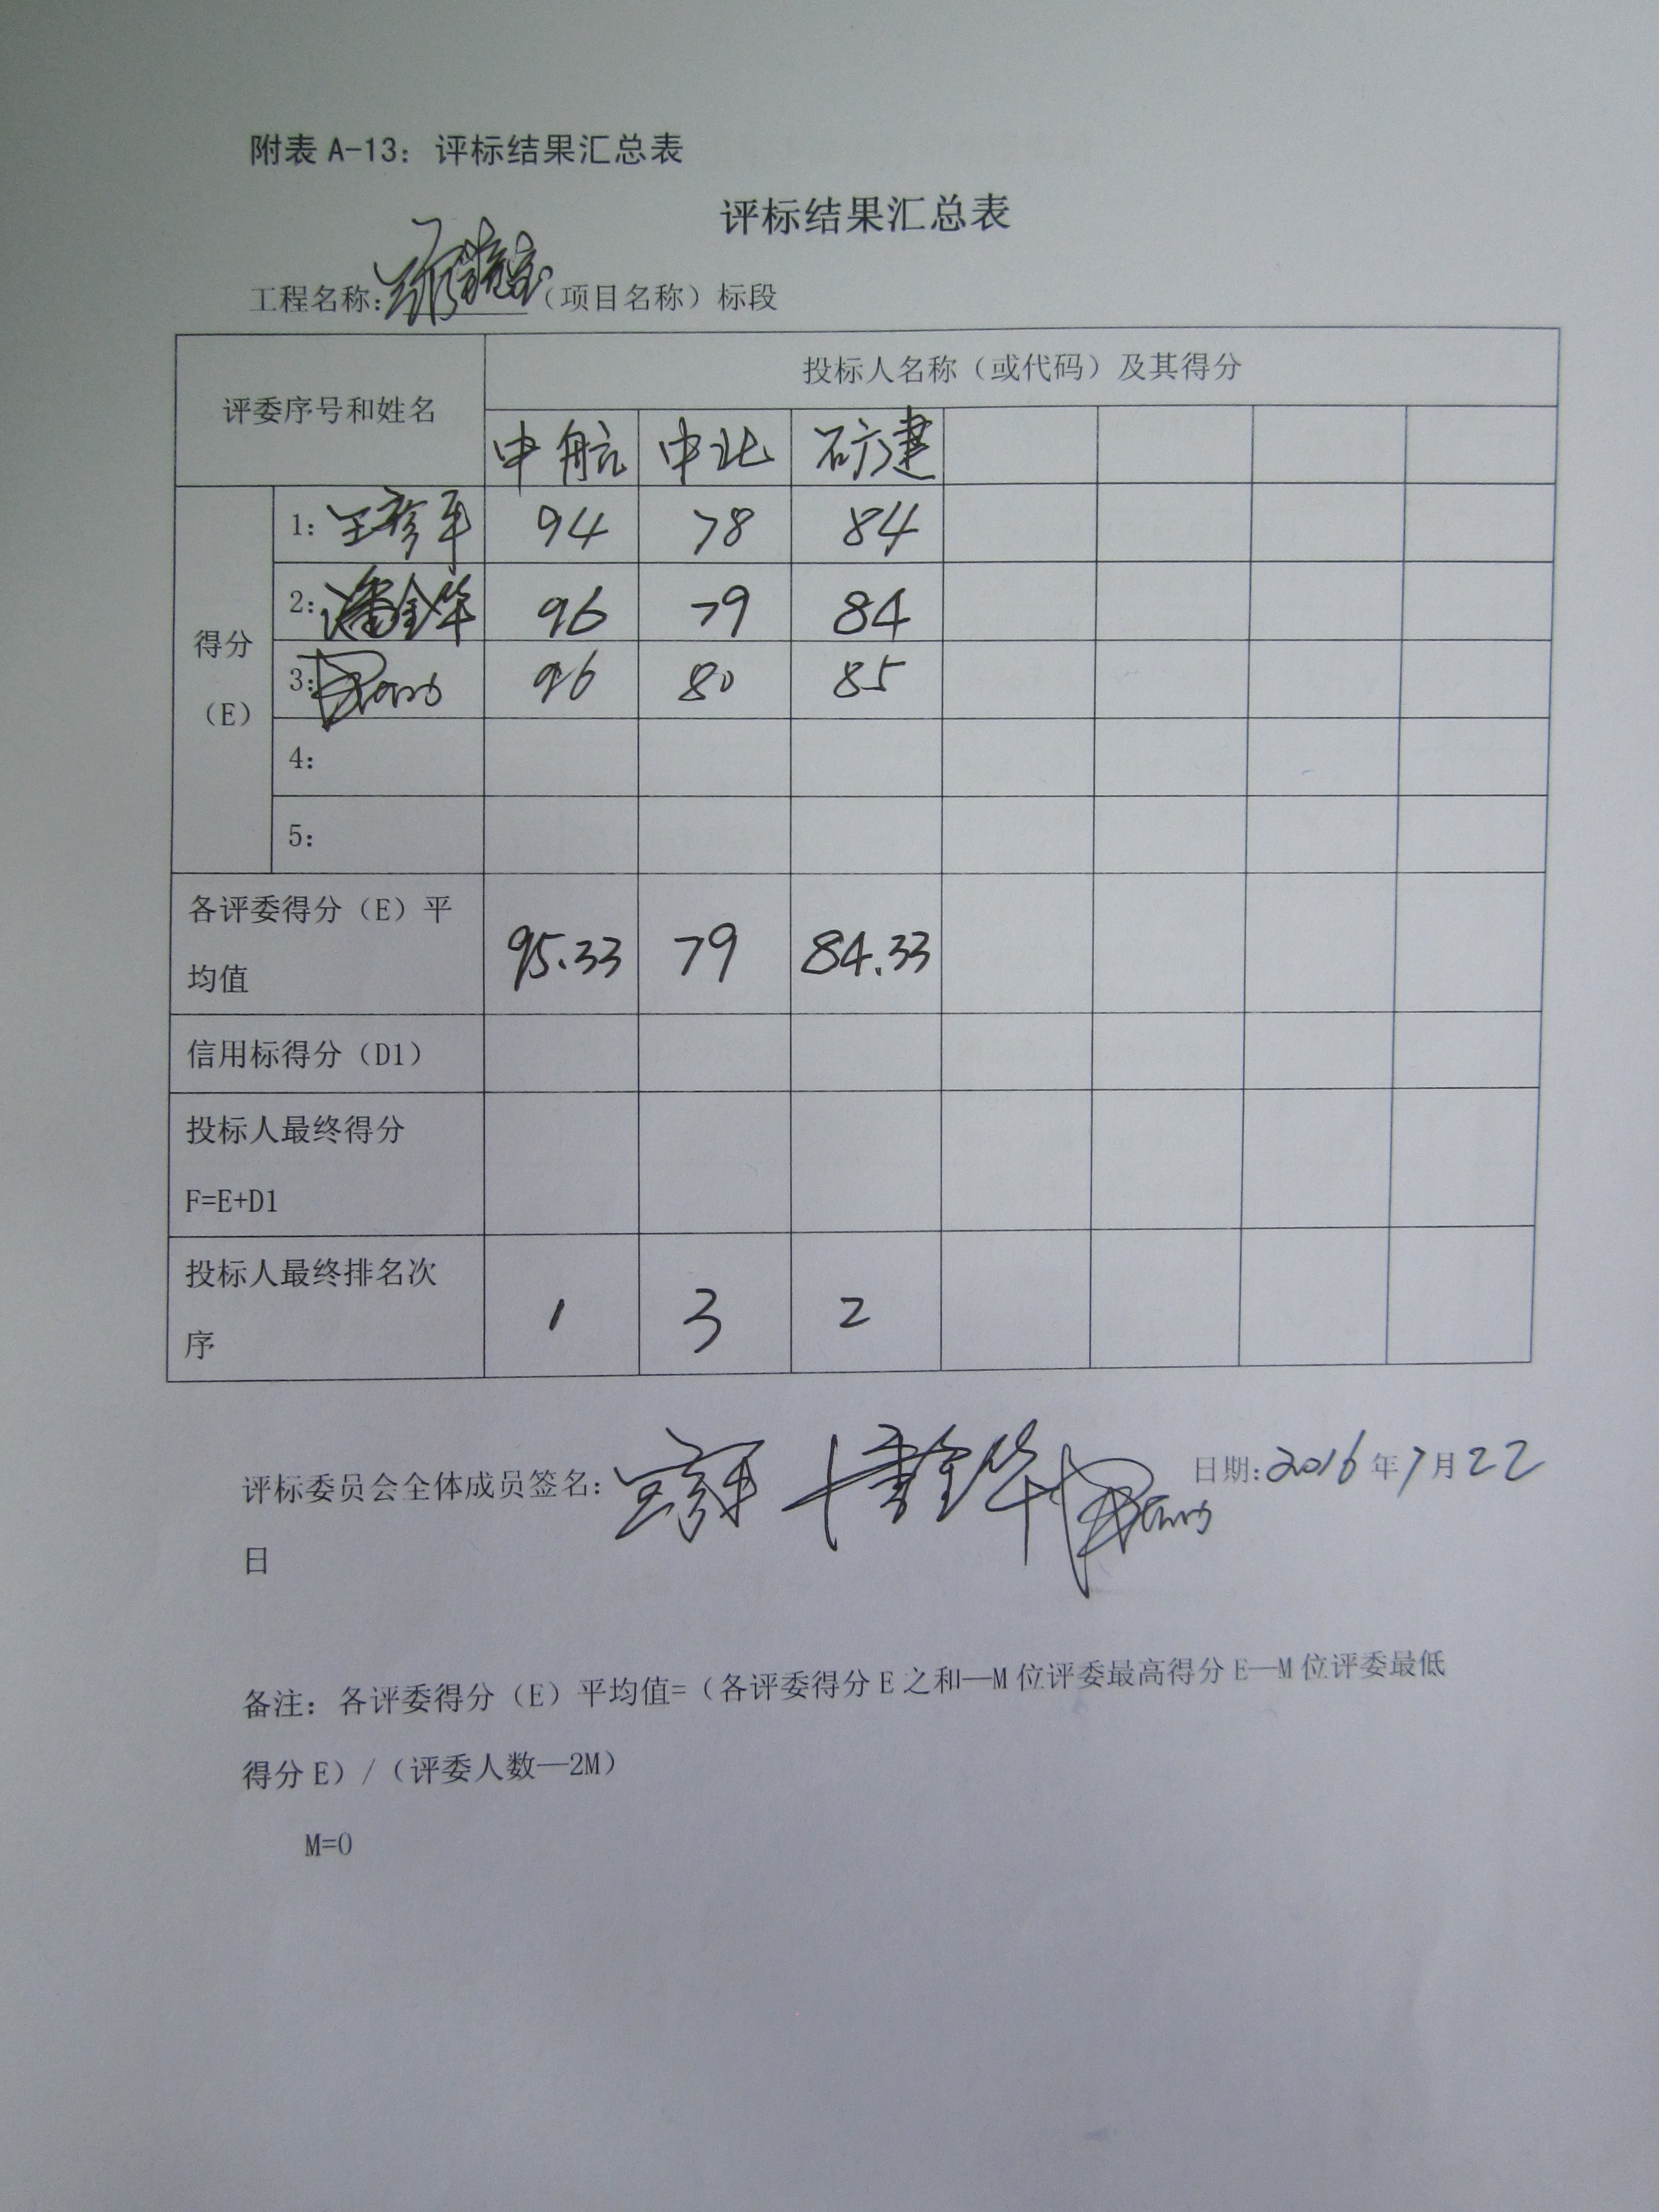 附表 A-13：评标结果汇总表
评标结果汇总表
工程名称：（项目名称）标段
评委序号和姓名
投标人名称（或代码）及其得分
中航 中北 矿建
得分
（E）
1：王彦平 94 78 84
2：潘金华 96 79 84
3： 96 80 85
4：
5：
各评委得分（E）平
均值
95.33 79 84.33
信用标得分（D1）
投标人最终得分
F=E+D1
投标人最终排名次
序
1 3 2
评标委员会全体成员签名：王彦平 潘金华 日期：2016年7月22
日
备注：各评委得分（E）平均值=（各评委得分 E 之和—M 位评委最高得分 E—M 位评委最低
得分 E）/（评委人数—2M）
M=0